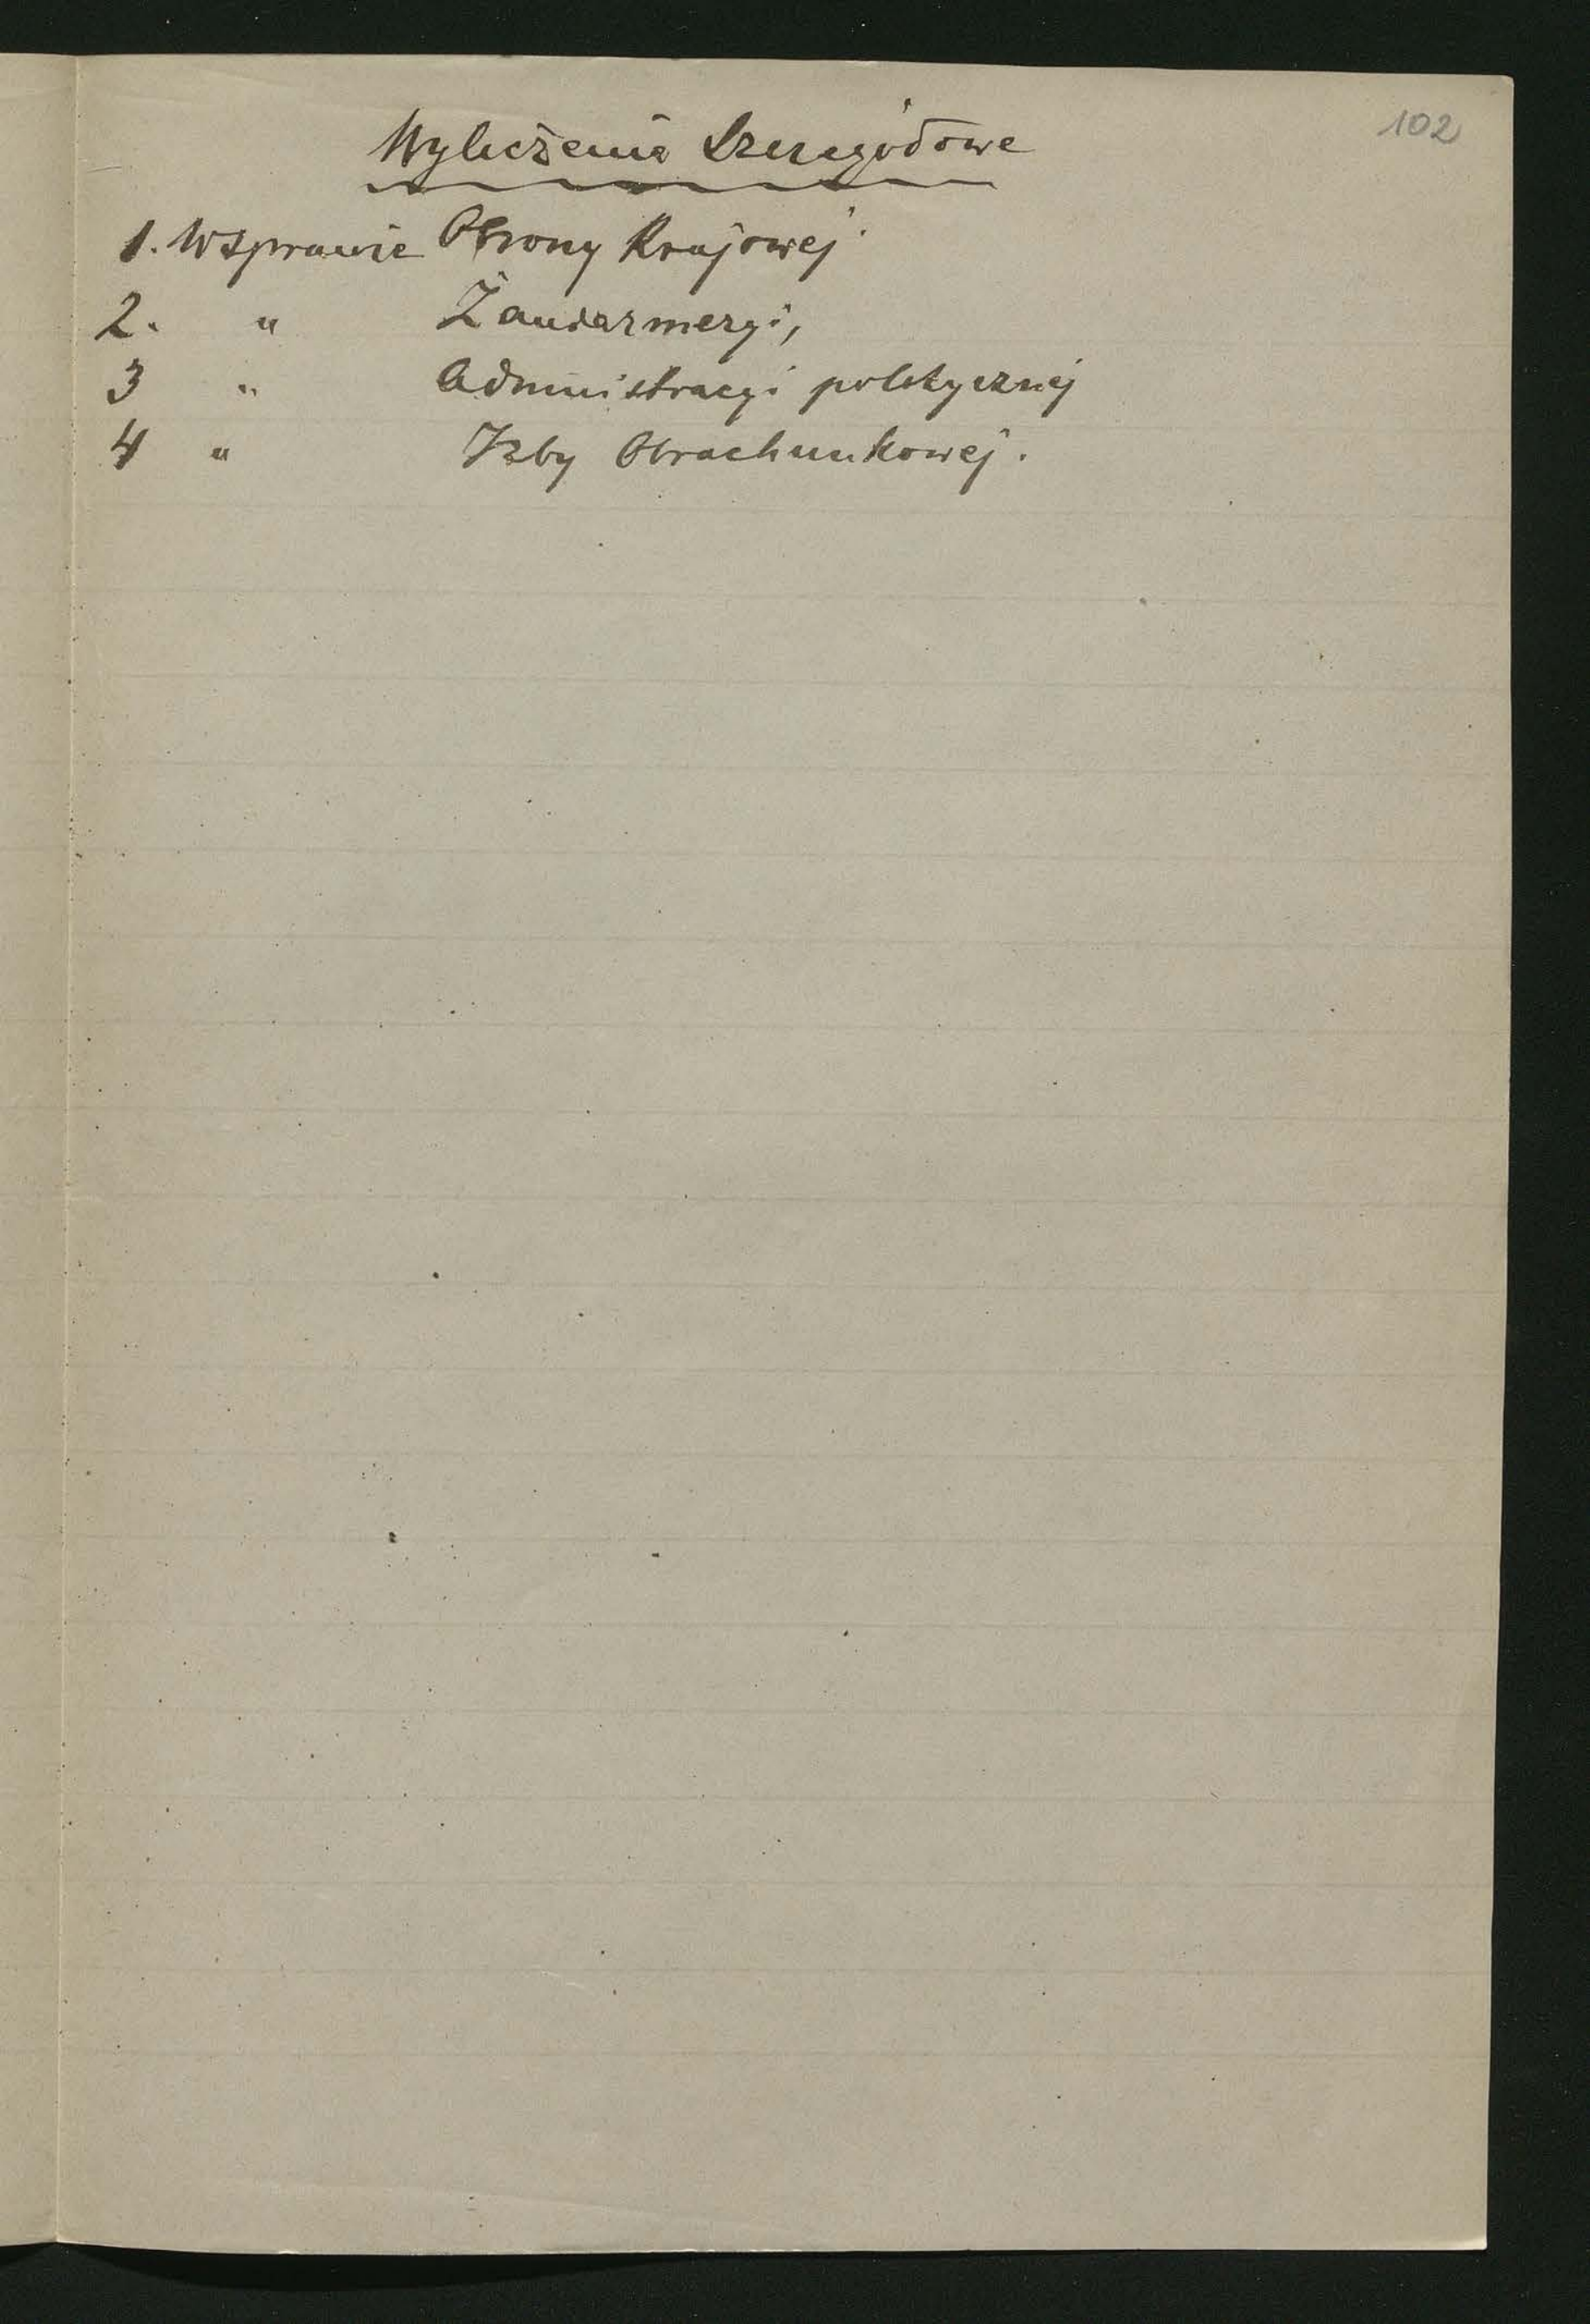 102
Wyliczenia Szczegółowe
1. W sprawie Obrony Krajowej.
2. " Żandarmeryi,
3 " Administracyi politycznej
4 " Izby Obrachunkowej.